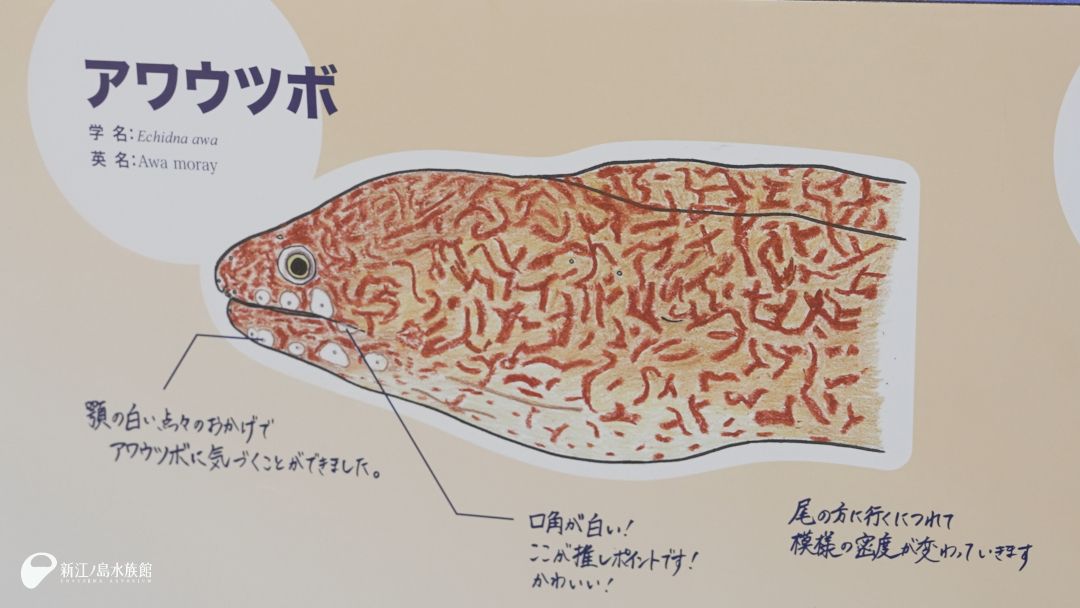 アワウツボ
学 名：Echidna awa
英 名：Awa moray
顎の白い点々のおかげで
アワウツボに気づくことができました。
口角が白い！
ここが推しポイントです！
かわいい！
尾の方に行くにつれて
模様の密度が変わっていきます
新江ノ島水族館
ENOSHIMA AQUARIUM